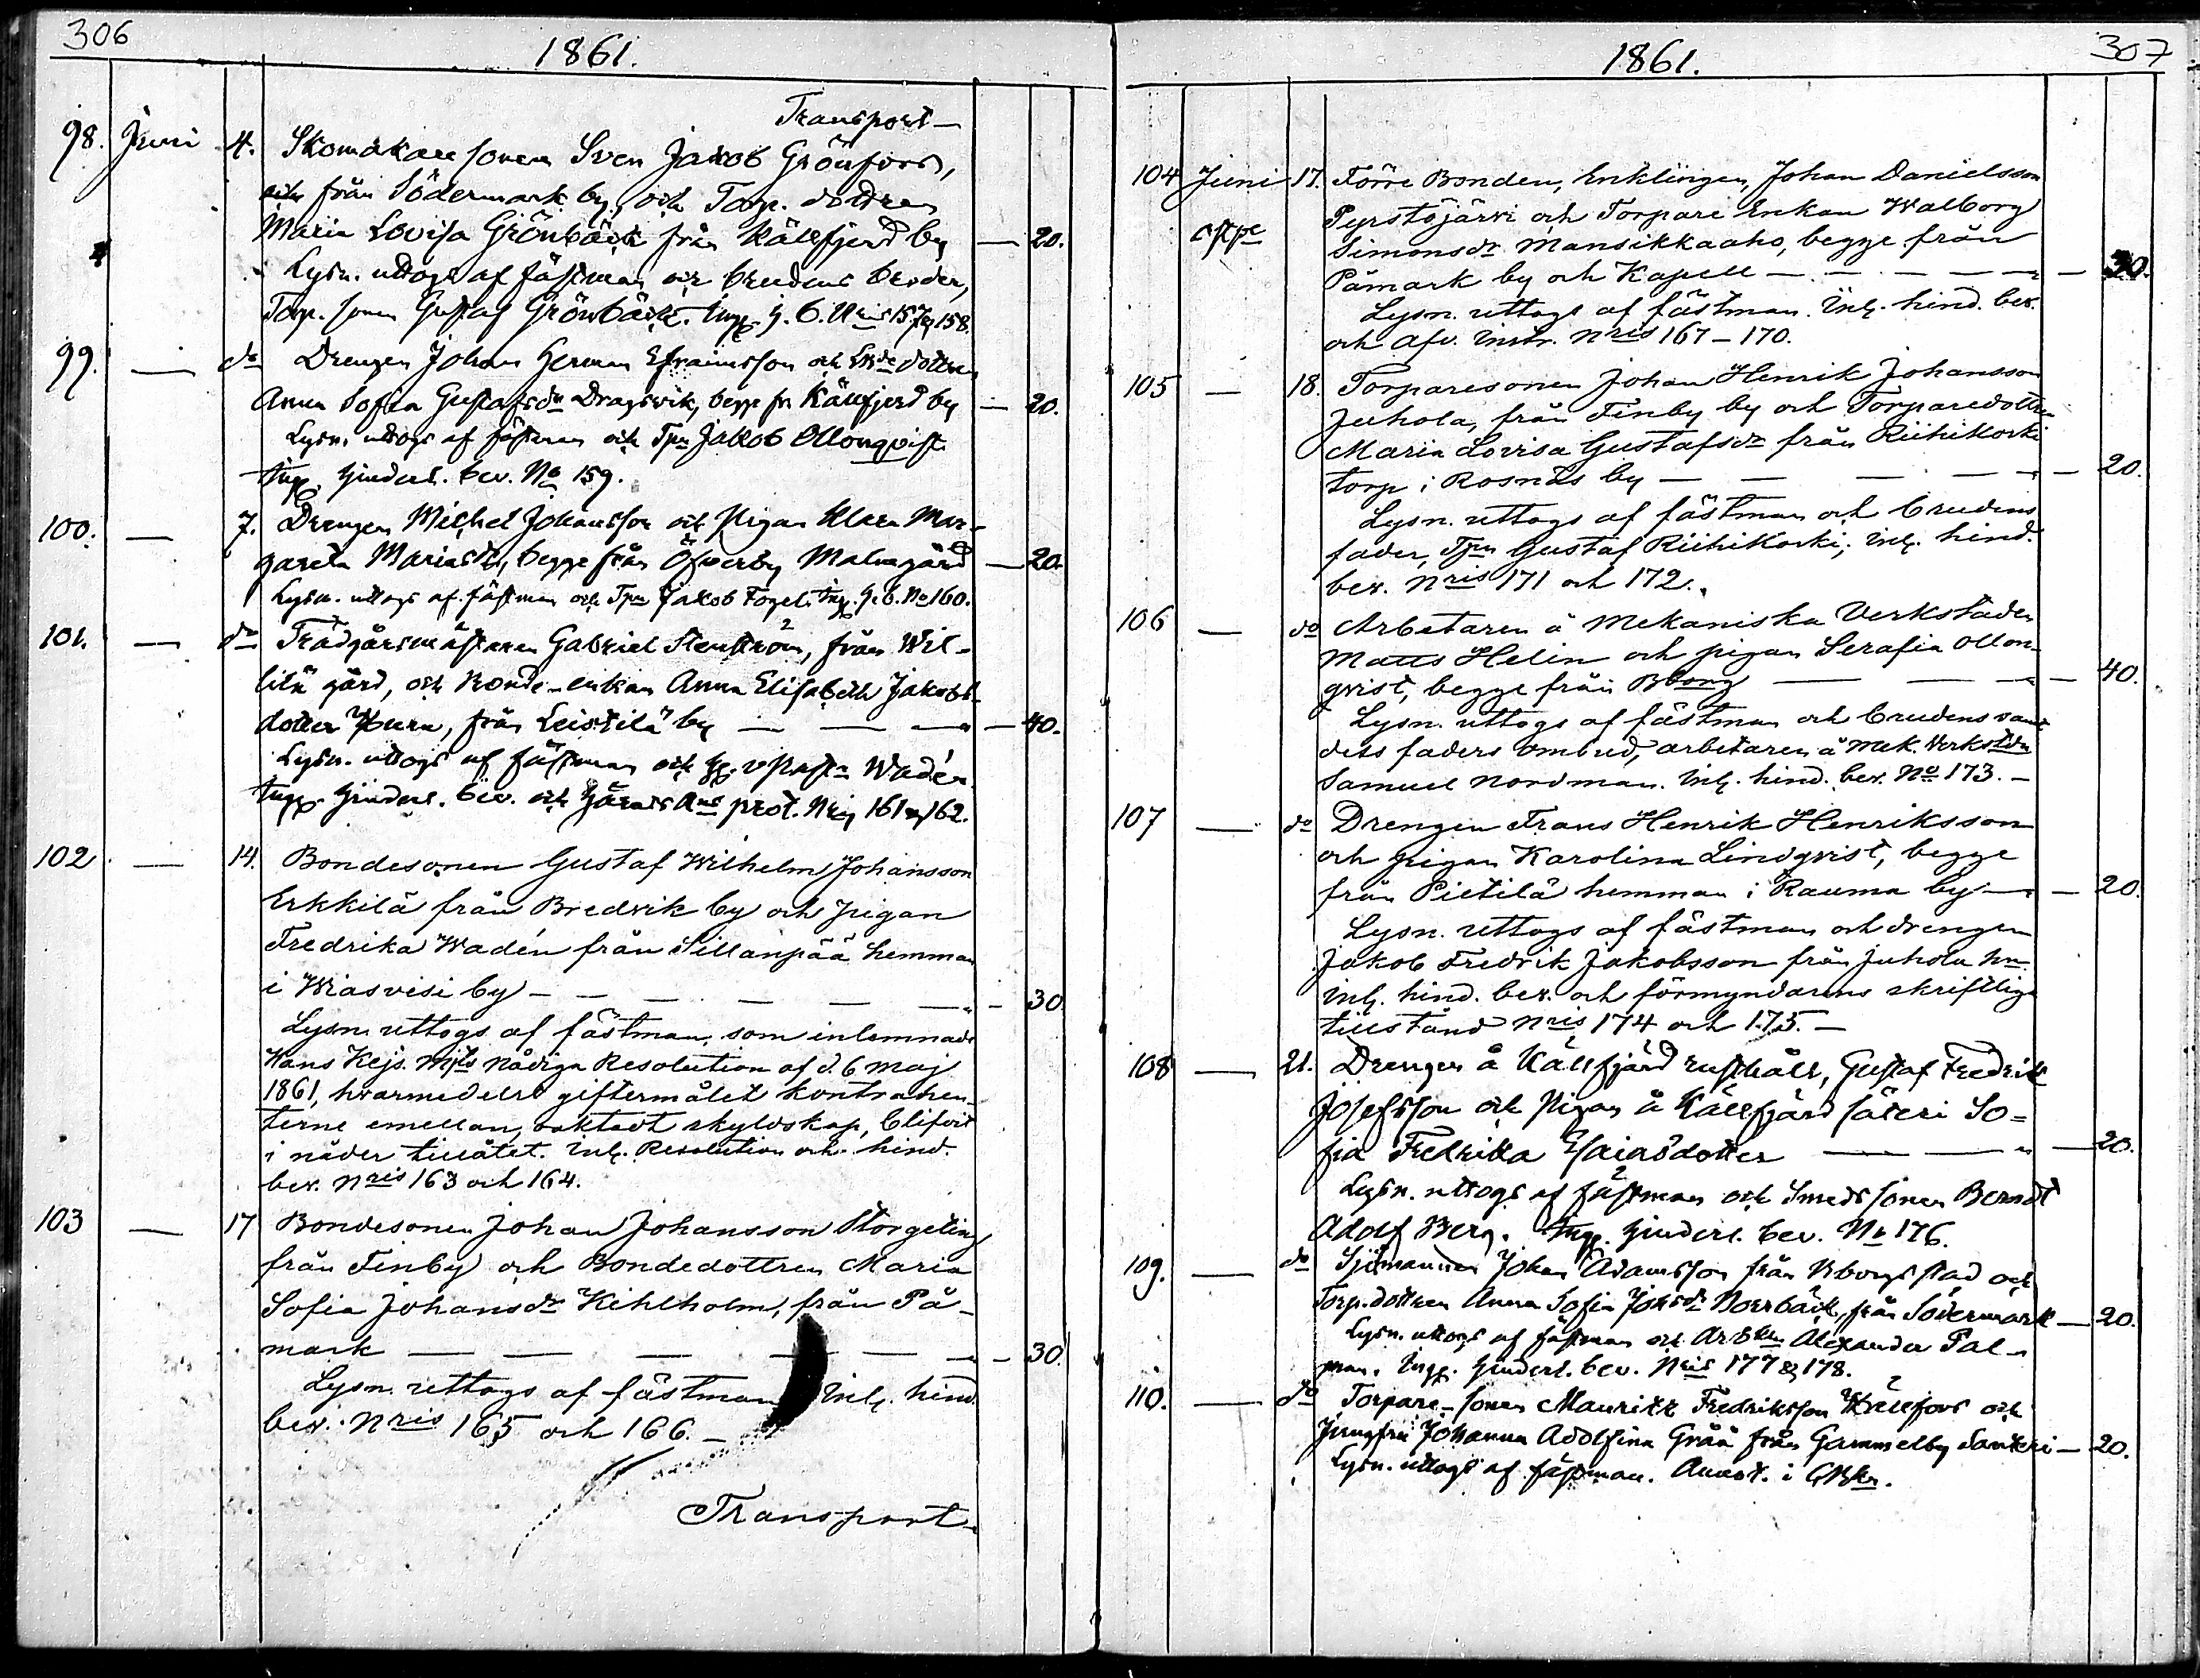 306
1861.
Transport
98. Juni 4. Skomakaresonen Sven Jakob Grönfors,
från Södermark by, och Torp. dottren
Maria Lovisa Grönbäck från Källfjerd by — 20.
Lysn. uttogs af fästman och brudens broder,
Torp. sonen Gustaf Grönbäck. Ing. h. b. Nris 157 & 158.
99. — do Drengen Johan Herman Efraimsson och dottren
Anna Sofia Gustafsdr Dragsvik, begge fr. Källfjerd by — 20.
Lysn. uttogs af fästman och Tpn Jakob Ollonqvist
Ing. hinderl. bev. No 159.
100. — 7. Drengen Wilhel Johansson och Pigan Klara Mar-
gareta Mariasdr, begge från Öfverby Malmgård — 20.
Lysn. uttogs af fästman och Tpn Jakob Fogel. Ing. h. b. No 160.
101. — do Trädgårsmästaren Gabriel Stenström, från Wil-
lilä gård, och Bonde-enkan Anna Elisabeth Jakobs-
dotter Juru, från Leistilä by — — — 40.
Lysn. uttogs af fästman och Wadén
Ing. hinderl. bev. och prot. Nris 161 & 162.
102 — 14. Bondesonen Gustaf Wilhelm Johansson
Erkkilä från Bredvik by och pigan
Fredrika Wadén från Sillanpää hemman
i Wiasvesi by — — — — — 30
Lysn. uttogs af fästman, som inlemnade
Hans Kejs. Mjts Nådiga Resolution af d. 6 Maj
1861, hvarmedelst giftermålet kontrahen-
terne emellan, oaktadt skyldskap, blifvit
i nåder tillåtet. Inl. Resolution och hind.
bev. Nris 163 och 164.
103 — 17 Bondesonen Johan Johansson Storgeting
från Finby och Bondedottren Maria
Sofia Johansdr Kihlholm, från På-
mark — — — — — 30.
Lysn. uttogs af fästman Inl. hind.
bev. Nris 165 och 166. —
Transport
1861.
307
104 Juni 17. Förre Bonden, Enklingen, Johan Danielsson
Pyrstöjärvi och Torpare Enkan Walborg
Simonsdr Mansikkaaho, begge från
Påmark by och Kapell — — — — 30.
Lysn. uttogs af fästman. Inl. hind. bev.
och afv. instr. Nris 167 – 170.
105 — 18. Torparesonen Johan Henrik Johansson
Juhola, från Finby by och Torparedottren
Maria Lovisa Gustafsdr från Riihikoski
torp i Rosnäs by — — — — 20.
Lysn. uttogs af fästman och brudens
fader, Tpn Gustaf Riihikoski; Inl. hind.
bev. Nris 171 och 172.
106 — do Arbetaren å Mekaniska Verkstaden
Matts Helin och pigan Serafia Ollon-
qvist, begge från Bborg — — — 40.
Lysn. uttogs af fästman och brudens samt
dess faders ombud, arbetaren å Mek. Verkstdn
Samuel Nordman. Inl. hind. bev. No 173. —
107 — do Drengen Frans Henrik Henriksson
och pigan Karolina Lindqvist, begge
från Pietilä hemman i Rauma by — — 20.
Lysn. uttogs af fästman och drengen
Jakob Fredrik Jakobsson från Juhola hn.
Inl. hind. bev. och förmyndarens skriftliga
tillstånd Nris 174 och 175. —
108 — 21. Drengen å Källfjärd rusthåll, Gustaf Fredrik
Josefsson och Pigan å Källfjärd säteri So-
fia Fredrika Esaiasdotter — — — 20.
Lysn. uttogs af fästman och Smedssonen Berndt
Adolf Berg. Ing. hinderl. bev. No 176.
109. — do Sjömannen Johan Adamsson från Bborgs stad och
Torp.dottren Anna Sofia Johsdr Norrbäck, från Södermark — 20.
Lysn. uttogs af fästman och Alexander Pal-
man. Ing. hinderl. bev. Nris 177 & 178.
110. — do Torpare-sonen Mauritz Fredriksson Källfors och
Jungfru Johanna Adolfina Gråå från Gammelby Santeri — 20.
Lysn. uttogs af fästman. i